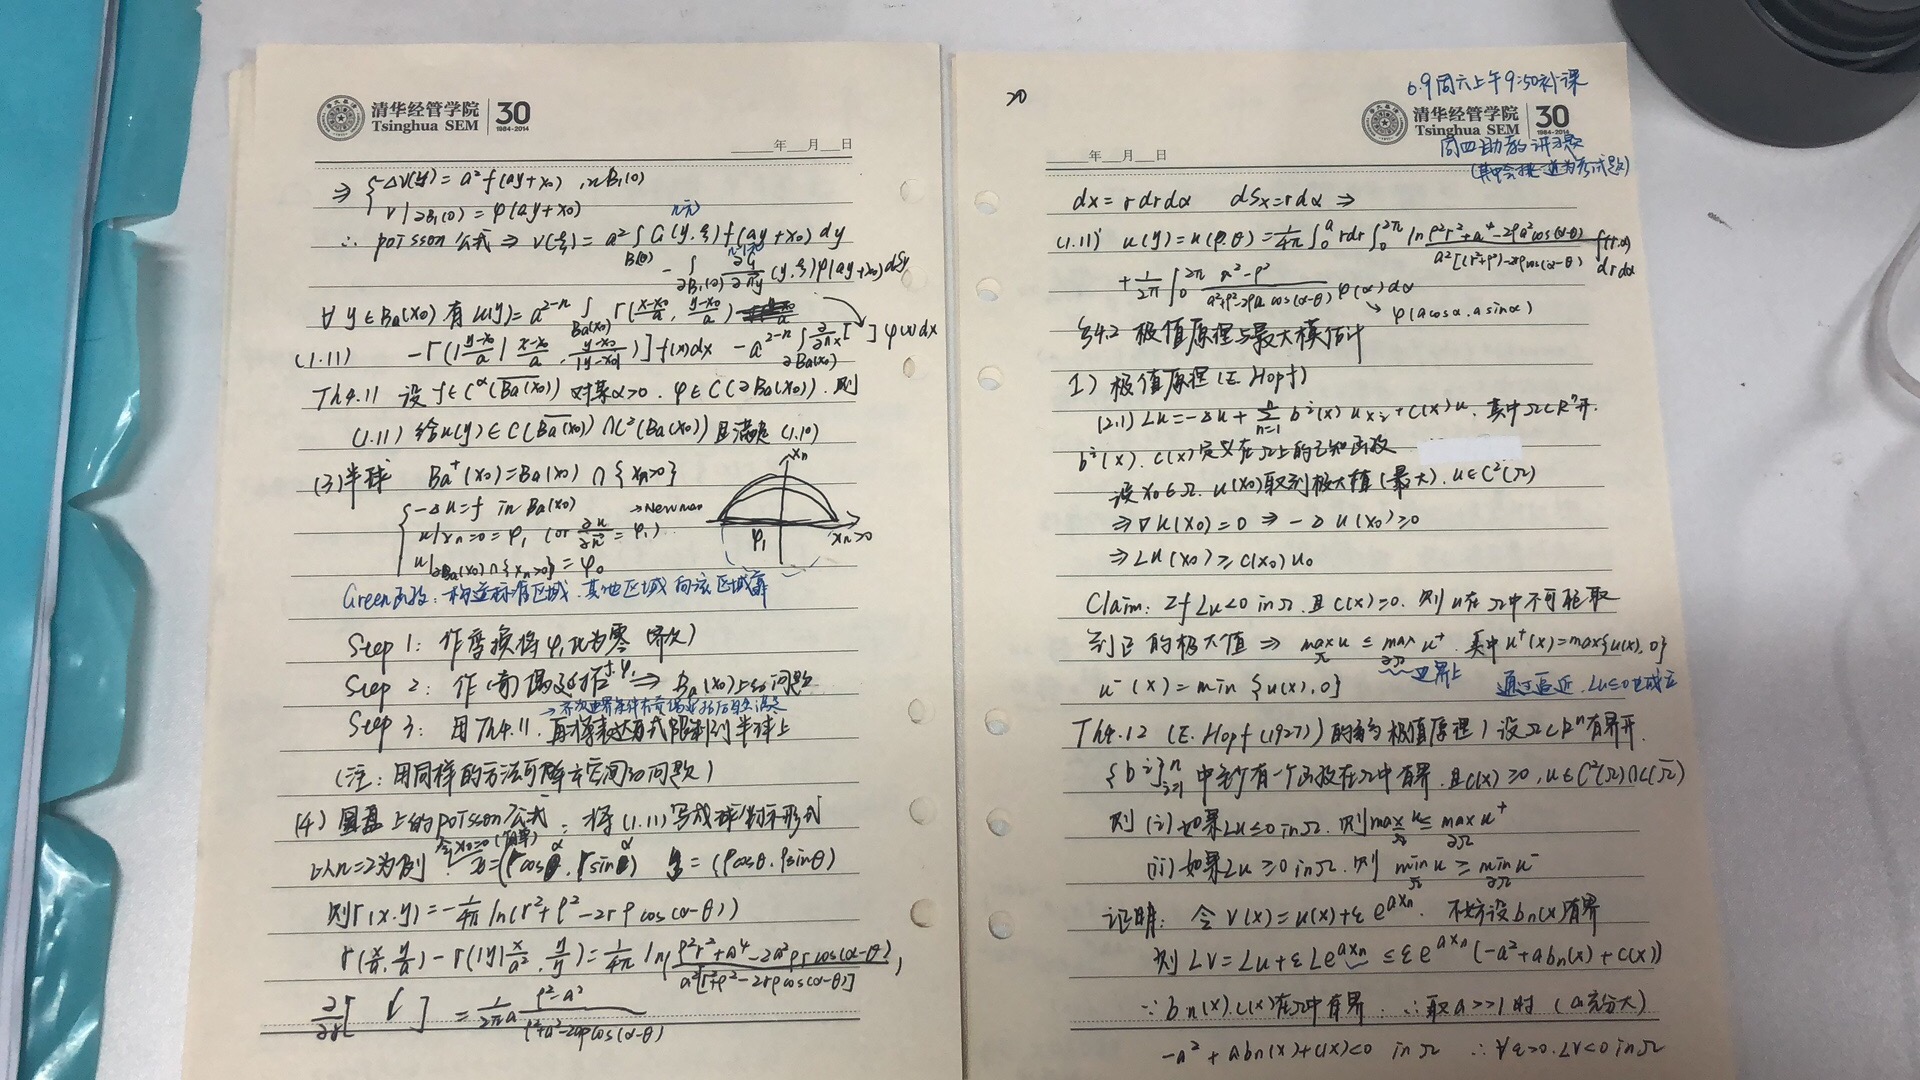 清华经管学院 30
Tsinghua SEM 1984-2014
年 月 日
⇒ { ΔV(y) = a² f(ay+x₀), in B₁(0)
V|∂B₁(0) = φ(ay+x₀)
∴ poisson 公式 ⇒ V(ξ) = a² ∫_{B₁(0)} G(y,ξ) f(ay+x₀) dy
- ∫_{∂B₁(0)} ∂G/∂n_y (y,ξ) φ(ay+x₀) dSy
∀ y∈Ba(x₀) 有 u(y) = a^{2-n} ∫_{Ba(x₀)} Γ((x-x₀)/a, (y-x₀)/a)
(1.11) -Γ(|(y-x₀)/a| (x-x₀)/a, (y-x₀)/|y-x₀|)] f(x)dx - a^{2-n} ∫_{∂Ba(x₀)} ∂/∂n_x [ ] φ(x)dx
Th4.11 设 f∈C^α(Ba(x₀)) 对某α>0. φ∈C(∂Ba(x₀)). 则
(1.11) 给 u(y)∈C(Ba(x₀))∩C²(Ba(x₀)) 且满足 (1.10)
(3) 半球 Ba⁺(x₀) = Ba(x₀) ∩ {xn>0}
{ -Δu = f in Ba(x₀)
u|xn=0 = φ₁ (or ∂u/∂n = φ₁) → Neumann
u|∂Ba(x₀)∩{xn>0} = φ₀
xn
φ₁
xn>0
Green函数: 构造标准区域. 其他区域向该区域靠
Step 1: 作变换将φ₁化为零 (齐次)
Step 2: 作(奇)偶延拓 ⇒ Ba(x₀)上的问题
Step 3: 用Th4.11. 再将表达式限制到半球上
(注: 用同样的方法可解半空间的问题)
(4) 圆盘上的poisson公式: 将(1.11)写成球坐标形式
令x₀=0 (简单)
以n=2为例 x = (r cosα, r sinα) y = (ρcosθ, ρsinθ)
则Γ(x,y) = -1/4π ln(r²+ρ²-2rρ cos(α-θ))
Γ(x/a, y/a) - Γ(|y| x/a², y/|y|) = 1/4π ln (ρ²r²+a⁴-2a²ρr cos(α-θ))/(a²[r²+ρ²-2rρcos(α-θ)]),
∂/∂r [ ↓ ] = 1/2πa (ρ²-a²)/(ρ²+a²-2aρcos(α-θ))
20
6.9周六上午9:50补课
清华经管学院 30
Tsinghua SEM 1984-2014
周四助教讲习题
年 月 日
dx = r dr dα dSx = r dα ⇒
(1.11)' u(y) = u(ρ,θ) = 1/4π ∫₀^a r dr ∫₀^{2π} ln (ρ²r²+a⁴-2ρa²cos(α-θ))/(a²[(r²+ρ²)-2rρcos(α-θ)]) f(r,α) dr dα
+ 1/2π ∫₀^{2π} (a²-ρ²)/(a²+ρ²-2ρa cos(α-θ)) φ(α) dα
→ φ(a cosα, a sinα)
§4.2 极值原理与最大模估计
1) 极值原理 (E. Hopf)
(2.1) Lu = -Δu + Σ_{i=1}^n bⁱ(x) u_{xi} + c(x)u. 其中Ω⊂Rⁿ开.
bⁱ(x). c(x) 定义在Ω上的已知函数
设 x₀∈Ω. u(x₀)取到极大值(最大). u∈C²(Ω)
⇒ ∇u(x₀) = 0 ⇒ -Δu(x₀) ≥ 0
⇒ Lu(x₀) ≥ c(x₀) u₀
Claim: If Lu<0 in Ω. 且 c(x)≥0. 则u在Ω中不可能取
到正的极大值 ⇒ max_Ω u ≤ max_∂Ω u⁺. 其中 u⁺(x) = max{u(x), 0}
u⁻(x) = min {u(x), 0} 边界上 通过逼近. Lu≤0也成立
Th4.12 (E. Hopf (1927)) 的弱极值原理) 设Ω⊂Rⁿ有界开.
{bⁱ}_{i=1}^n 中至少有一个函数在Ω中有界. 且c(x)≥0, u∈C²(Ω)∩C(Ω̄)
则 (i) 如果Lu≤0 in Ω. 则 max_Ω u ≤ max_∂Ω u⁺
(ii) 如果Lu ≥0 in Ω. 则 min_Ω u ≥ min_∂Ω u⁻
证明: 令 V(x) = u(x) + ε e^{axn}. 不妨设 bn(x)有界
则 LV = Lu + εLe^{axn} ≤ εe^{axn}(-a²+abn(x)+c(x))
∵ bn(x). c(x)在Ω中有界. ∴ 取 a>>1 时 (a充分大)
-a² + abn(x)+c(x)<0 in Ω ∴ ∀ε>0. LV<0 in Ω